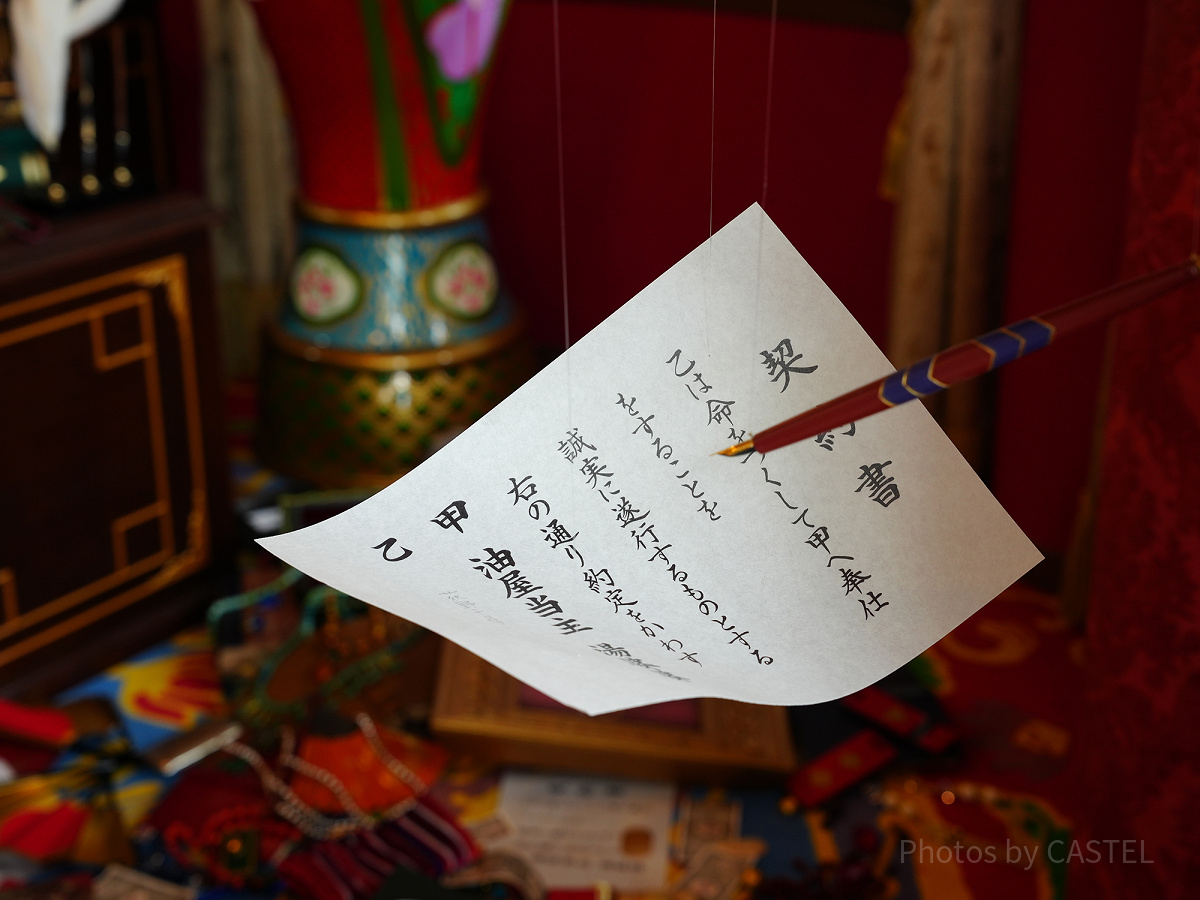 契約書
乙は命をつくして甲へ奉仕
をすることを
誠実に遂行するものとする
右の通り約定をかわす
甲 油屋当主 湯
乙
Photos by CASTEL